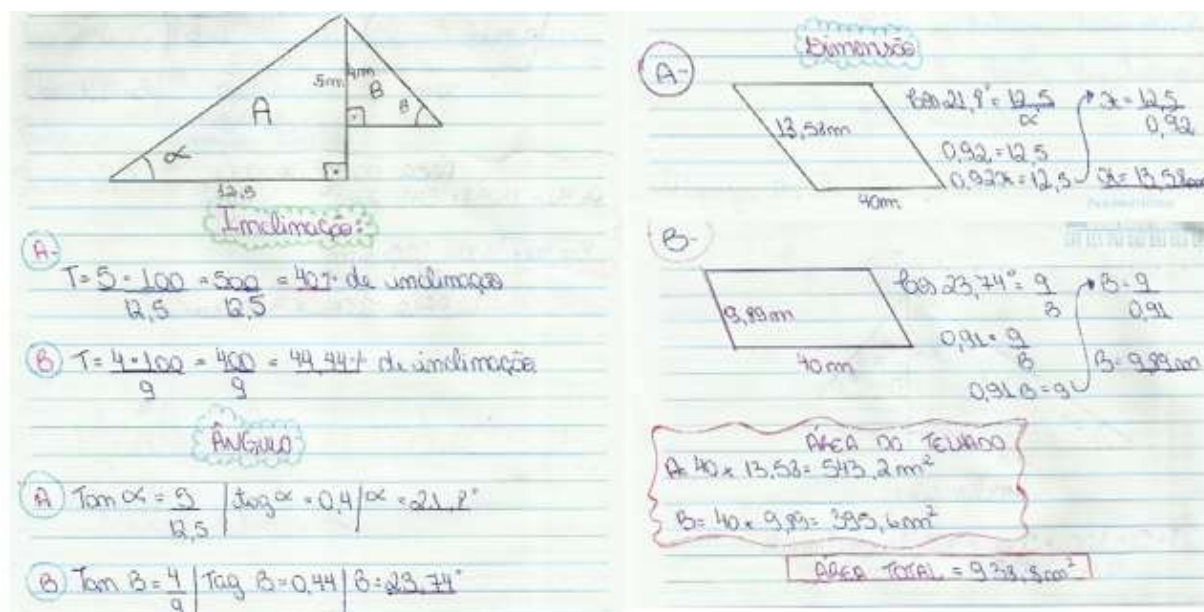 5m 4m
B
A
B
α
12,5
Inclinação:
A- T = 5 · 100 = 500 = 40% de inclinação
12,5 12,5
B T = 4 · 100 = 400 = 44,44% de inclinação
9 9
ÂNGULO
A Tan α = 5 | tag α = 0,4 | α = 21,8°
12,5
B Tan B = 4 | Tag B = 0,44 | B = 23,74°
9
Dimensão
A-
13,58m
40m
Cos 21,8° = 12,5 x = 12,5
x 0,92
0,92 = 12,5
0,92x = 12,5 x = 13,58m
B-
9,89m
40m
Cos 23,74° = 9 B = 9
B 0,91
0,91 = 9
B B = 9,89m
0,91B = 9
ÁREA DO TELHADO
A = 40 x 13,58 = 543,2 m²
B = 40 x 9,89 = 395,6 m²
ÁREA TOTAL = 938,8 m²